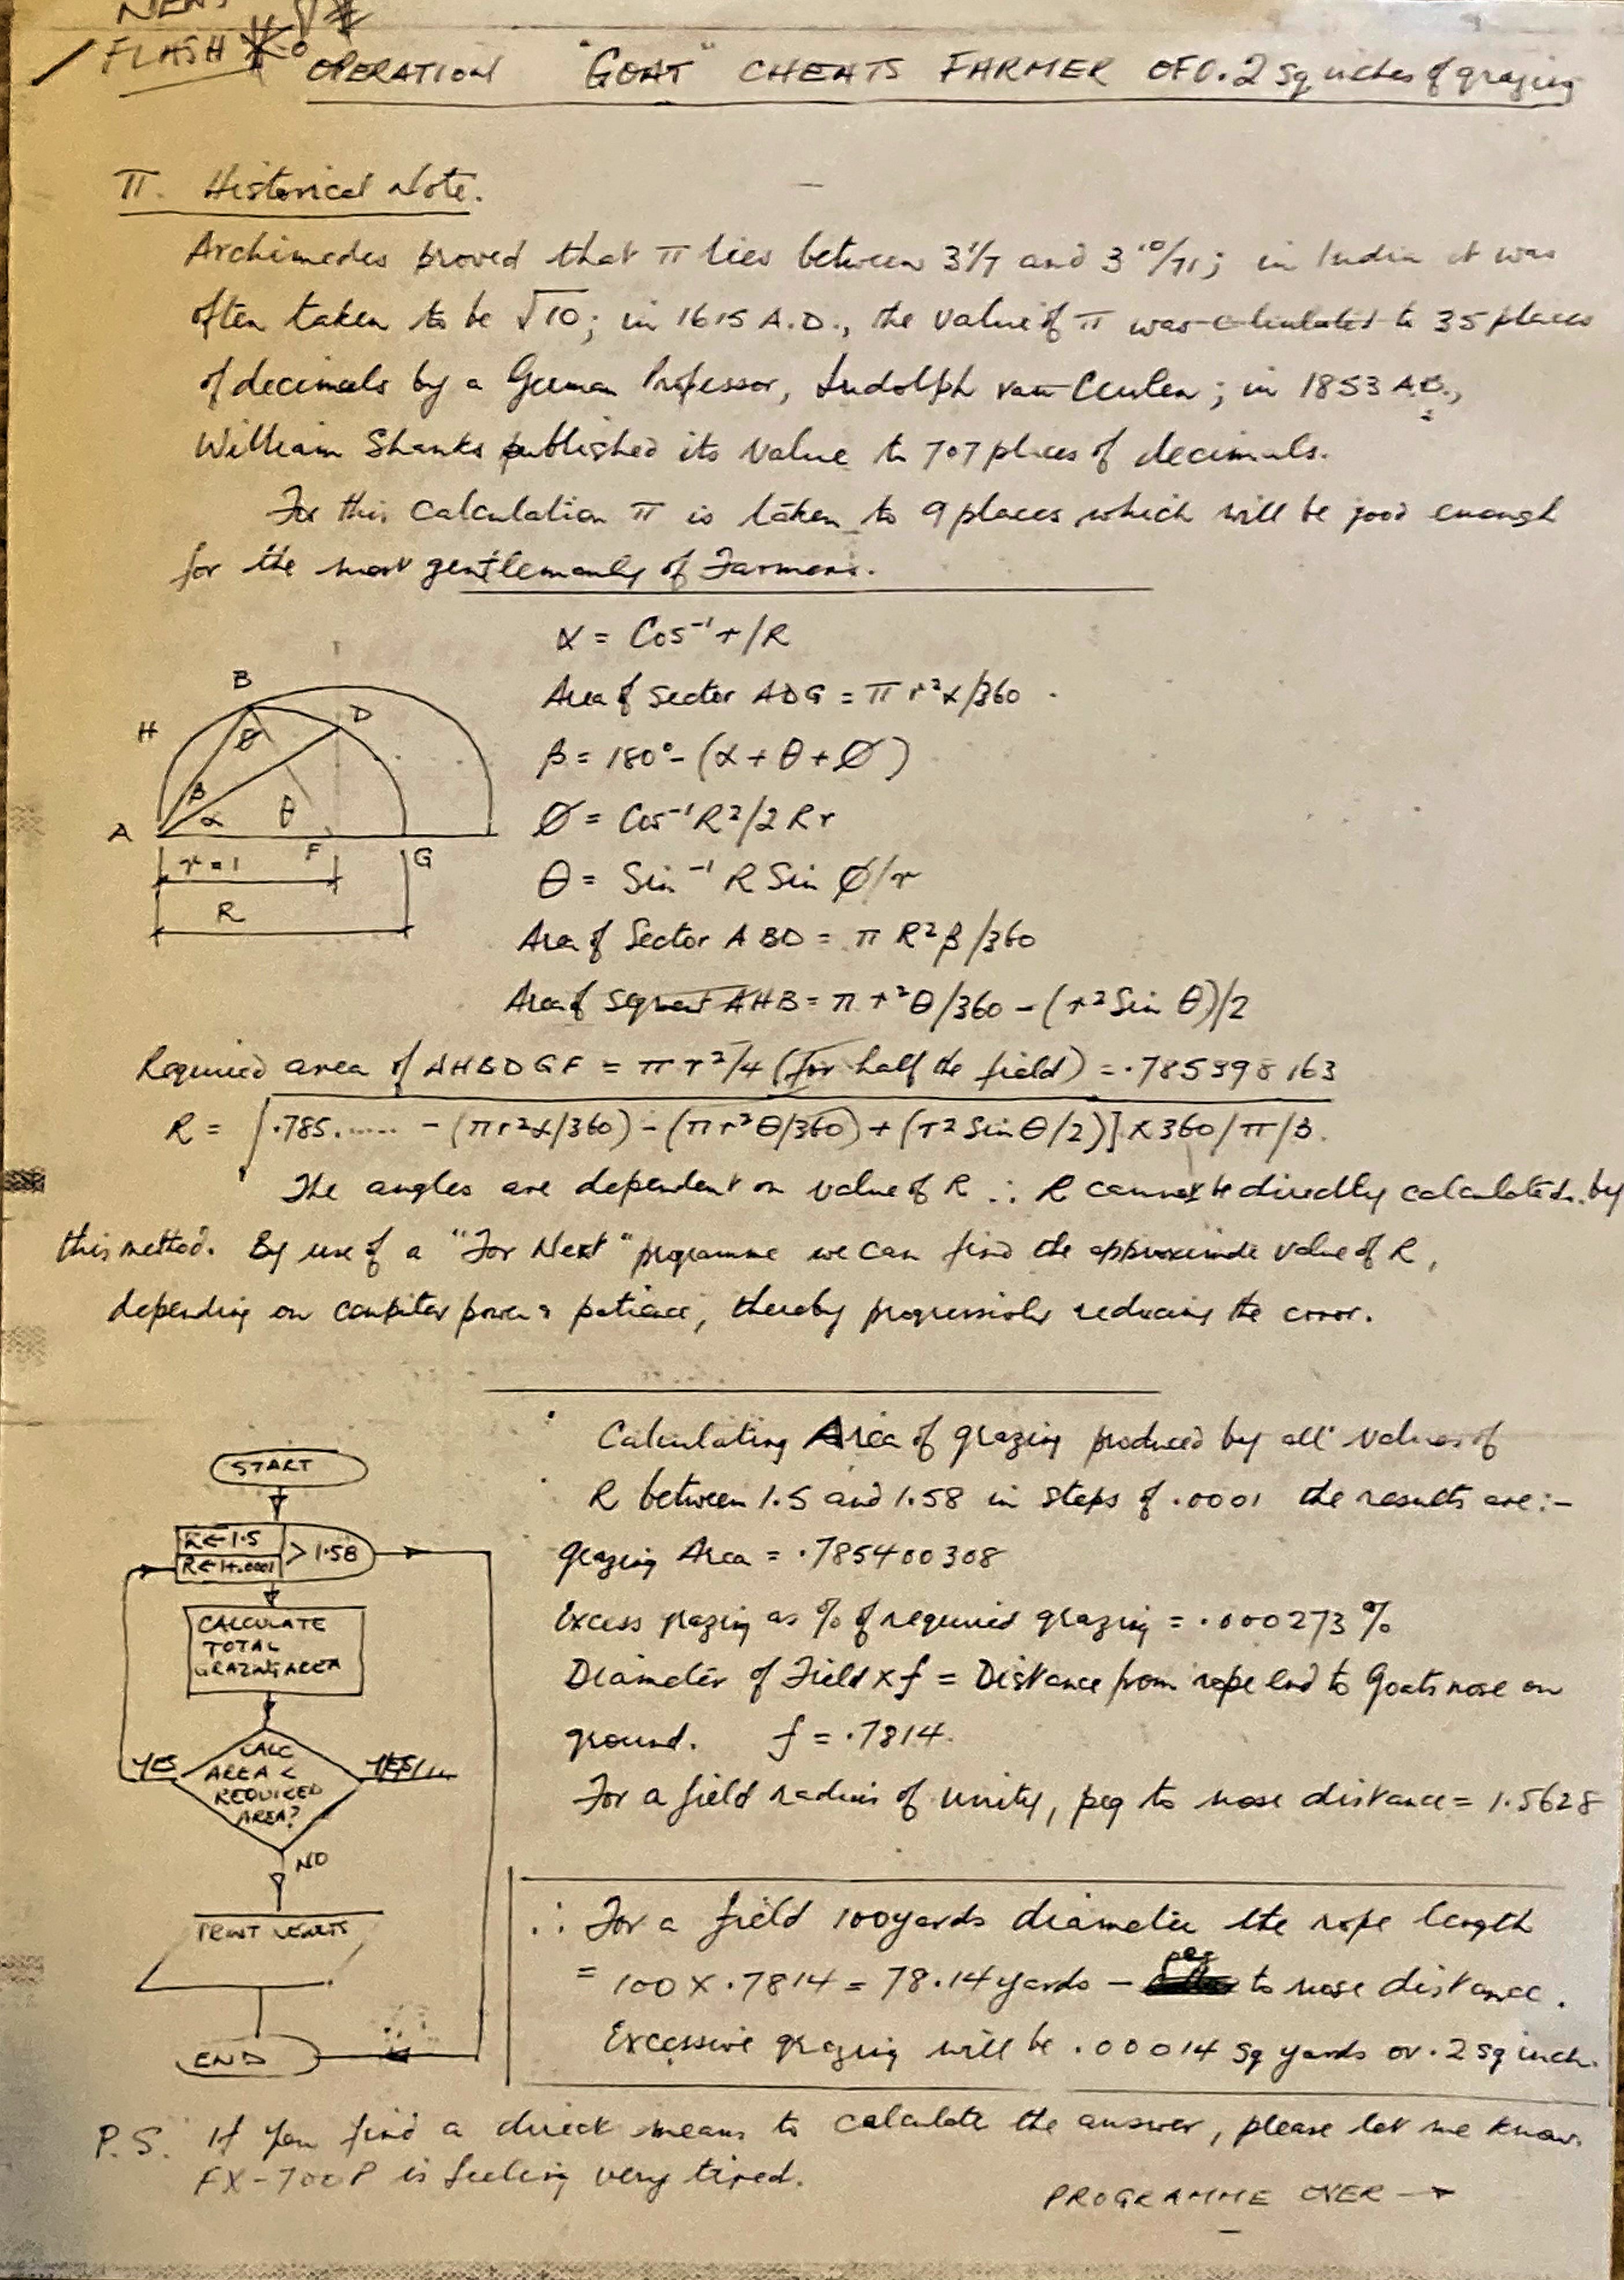 NEWS
FLASH
OPERATION "GOAT" CHEATS FARMER OF 0.2 sq inches of grazing
π. Historical Note.
Archimedes proved that π lies between 3 1/7 and 3 10/71; in India it was
often taken to be √10; in 1615 A.D., the value of π was calculated to 35 places
of decimals by a German Professor, Ludolph van Ceulen; in 1853 A.D.,
William Shanks published its value to 707 places of decimals.
For this calculation π is taken to 9 places which will be good enough
for the most gentlemanly of Farmers.
α = Cos⁻¹ r/R
Area of sector ADG = π r²α/360
β = 180° - (α + θ + Ø)
Ø = Cos⁻¹ R²/2Rr
θ = Sin⁻¹ R Sin Ø/r
Area of Sector ABD = π R² β/360
Area of segment AHB = π r²θ/360 - (r² Sin θ)/2
B
H
D
Ø
β
α
θ
A
F
G
r = 1
R
Required area of AHBDGF = π r²/4 (for half the field) = .785398163
R = √.785...... - (πr²α/360) - (πr²θ/360) + (r² Sin θ/2)] x 360/π/β.
The angles are dependent on value of R ∴ R cannot be directly calculated by
this method. By use of a "For Next" programme we can find the approximate value of R,
depending on computer power & patience, thereby progressively reducing the error.
Calculating Area of grazing produced by all values of
R between 1.5 and 1.58 in steps of .0001 the results are:-
grazing Area = .785400308
Excess grazing as % of required grazing = .000273 %
Diameter of Field x f = Distance from rope end to Goats nose on
ground. f = .7814.
For a field radius of unity, peg to nose distance = 1.5628
START
R←1.5
R←+.0001
> 1.58
CALCULATE
TOTAL
GRAZING AREA
CALC
AREA <
REQUIRED
AREA?
YES
YES
NO
PRINT RESULTS
END
∴ For a field 100 yards diameter the rope length
= 100 x .7814 = 78.14 yards - peg to nose distance.
Excessive grazing will be .00014 sq yards or .2 sq inch.
P.S. If you find a direct means to calculate the answer, please let me know.
FX-700P is feeling very tired.
PROGRAMME OVER →